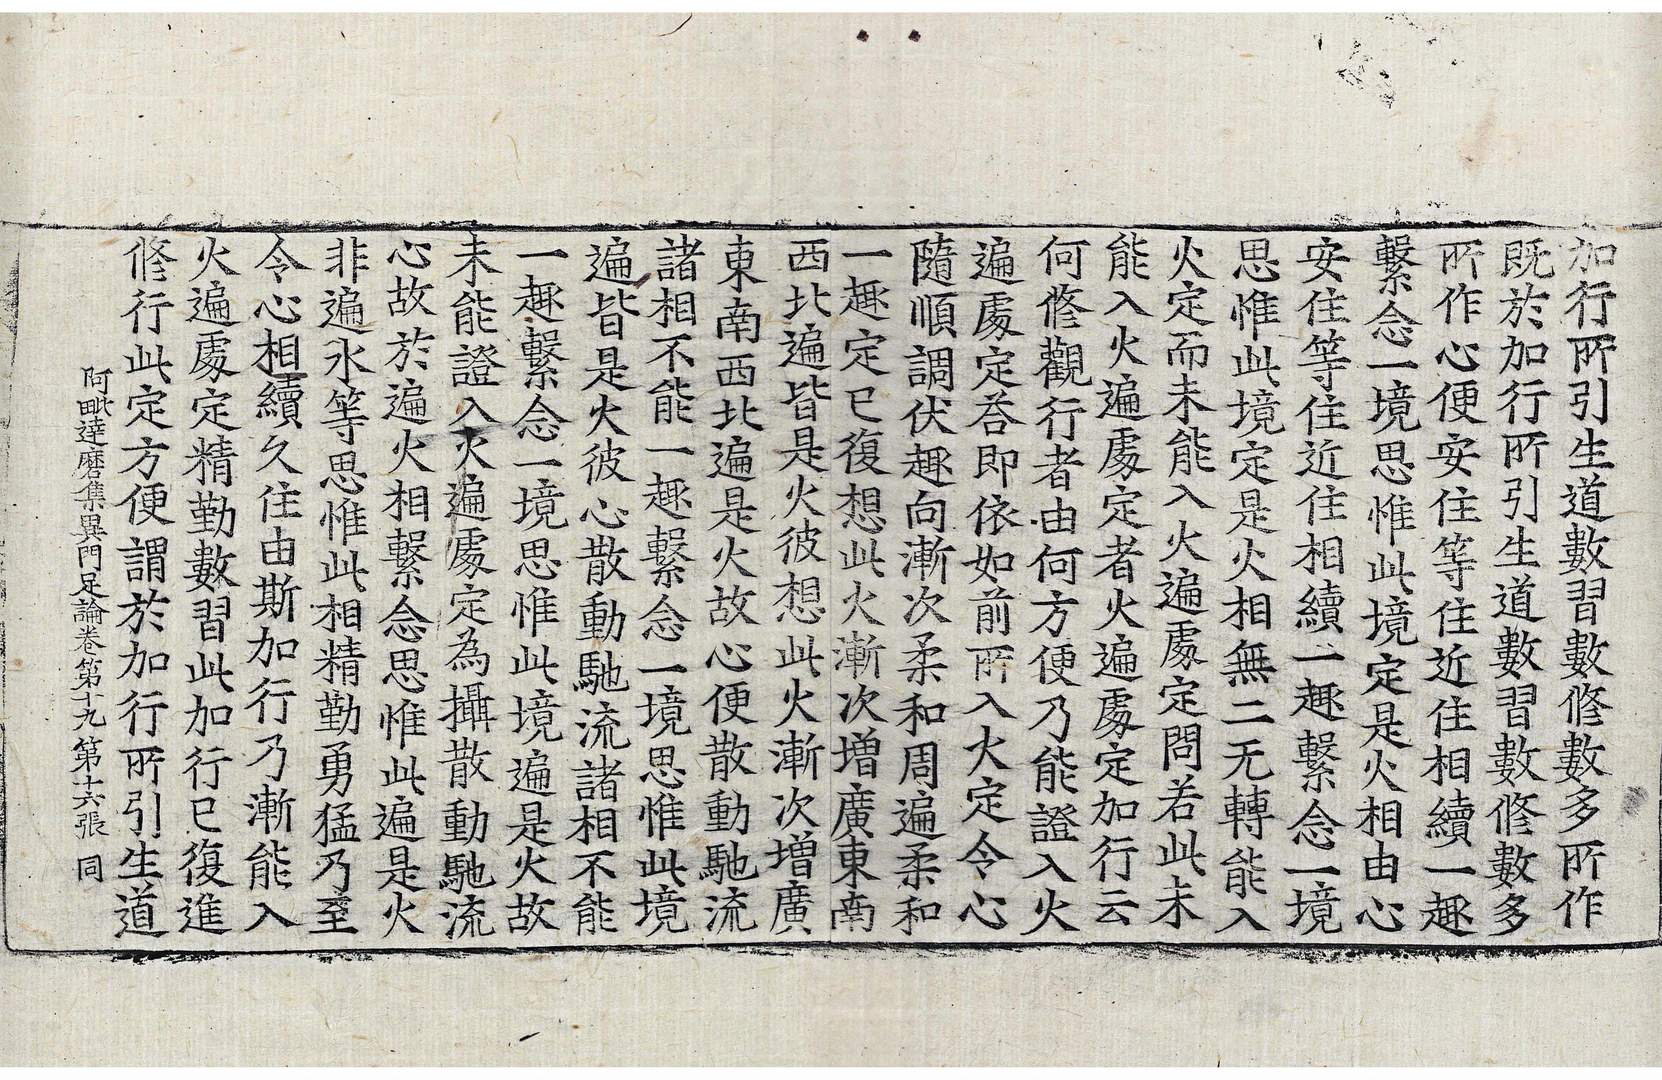 加行所引生道數習數修數多所作
既於加行所引生道數習數修數多
所作心便安住等住近住相續一趣
繫念一境思惟此境定是火相由心
安住等住近住相續一趣繫念一境
思惟此境定是火相無二无轉能入
火定而未能入火遍處定問若此未
能入火遍處定者火遍處定加行云
何修觀行者由何方便乃能證入火
遍處定荅即依如前所入火定令心
隨順調伏趣向漸次柔和周遍柔和
一趣定已復想此火漸次增廣東南
西北遍皆是火彼想此火漸次增廣
東南西北遍是火故心便散動馳流
諸相不能一趣繫念一境思惟此境
遍皆是火彼心散動馳流諸相不能
一趣繫念一境思惟此境遍是火故
未能證入火遍處定為攝散動馳流
心故於遍火相繫念思惟此遍是火
非遍水等思惟此相精勤勇猛乃至
令心相續久住由斯加行乃漸能入
火遍處定精勤數習此加行已復進
修行此定方便謂於加行所引生道
阿毗達磨集異門足論卷第十九 第十六張 同